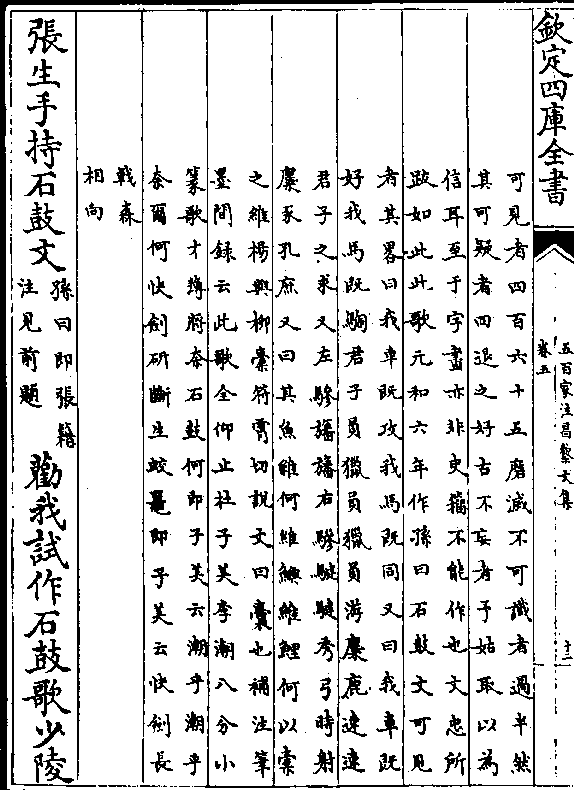 欽定四庫全書
五百家注昌黎文集
卷五
十二
可見者四百六十五磨滅不可識者過半然
其可疑者四退之好古不妄者予姑取以為
信耳至于字畫亦非史籀不能作也文忠所
跋如此此歌元和六年作孫曰石鼓文可見
者其畧曰我車既攻我馬既同又曰我車既
好我馬既駒君子員獵員獵員游麋鹿速速
君子之求又左驂旛旛右驂騝騝秀弓時射
麋豕孔庶又曰其魚維何維鱮維鯉何以槖
之維楊與柳槖符霄切說文曰囊也補注筆
墨間錄云此歌全仰止杜子美李潮八分小
篆歌才薄將奈石鼓何即子美云潮乎潮乎
奈爾何快劍斫斷生蛟鼉即子美云快劍長
戟森
相向
張生手持石鼓文
孫曰即張籍
注見前題
勸我試作石鼓歌少陵